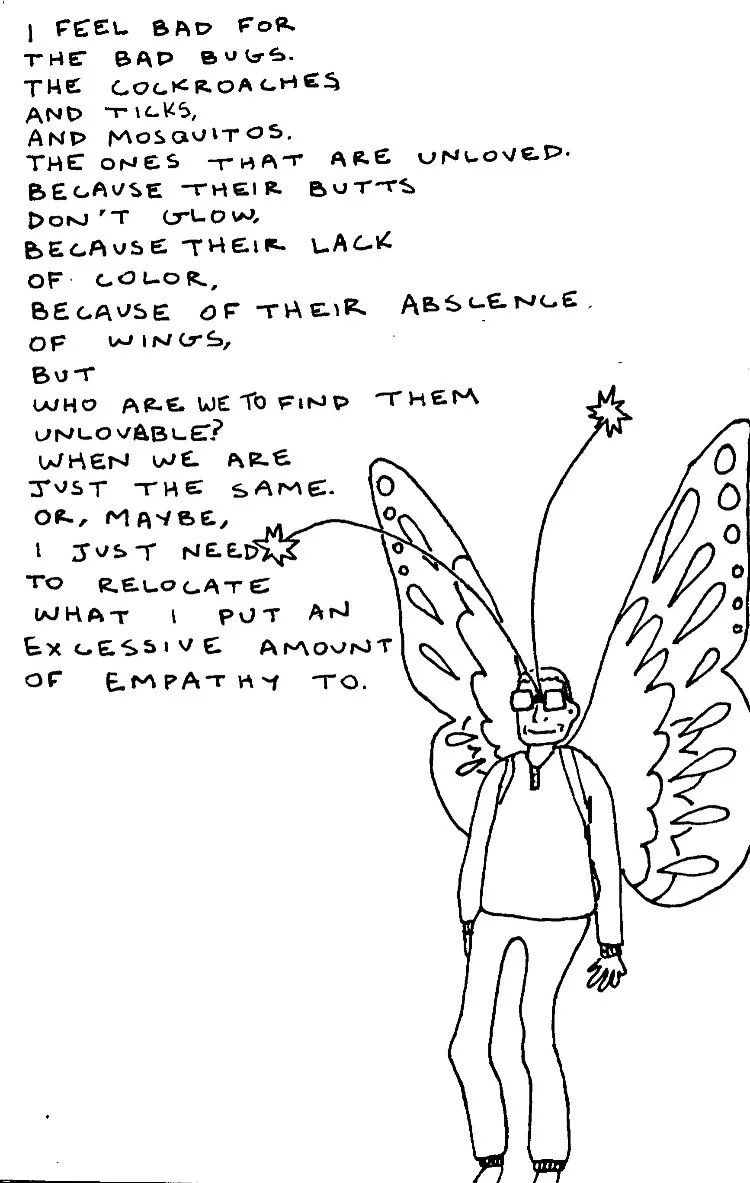 I FEEL BAD FOR
THE BAD BUGS.
THE COCKROACHES
AND TICKS,
AND MOSQUITOS.
THE ONES THAT ARE UNLOVED.
BECAUSE THEIR BUTTS
DON'T GLOW,
BECAUSE THEIR LACK
OF COLOR,
BECAUSE OF THEIR ABSCENCE
OF WINGS,
BUT
WHO ARE WE TO FIND THEM
UNLOVABLE?
WHEN WE ARE
JUST THE SAME.
OR, MAYBE,
I JUST NEED
TO RELOCATE
WHAT I PUT AN
EXCESSIVE AMOUNT
OF EMPATHY TO.